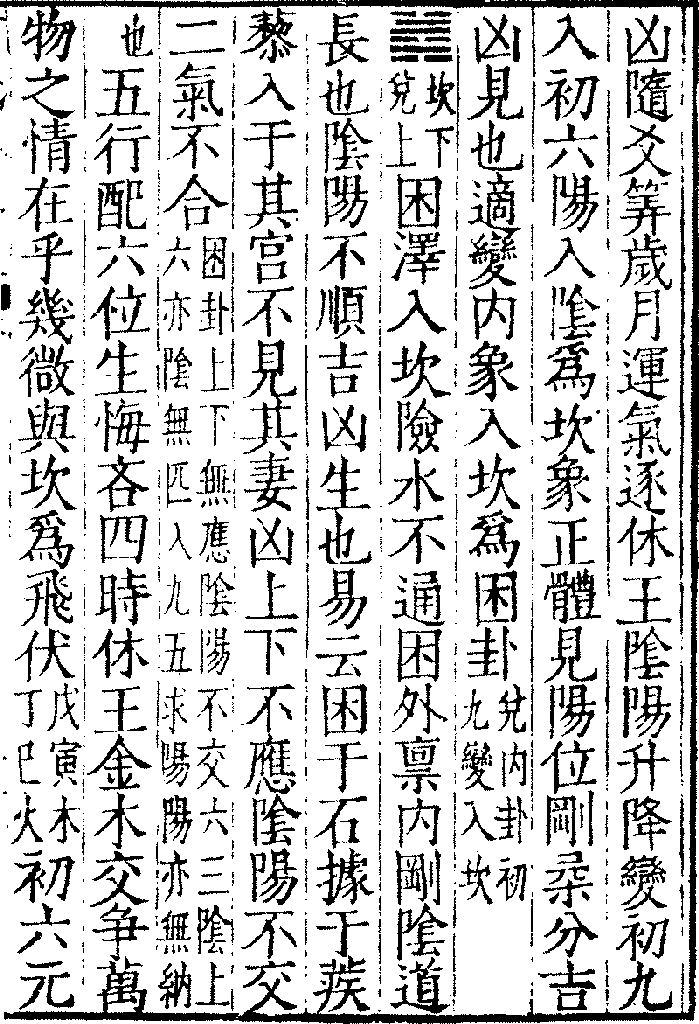 凶隨爻筭歲月運氣逐休王陰陽升降變初九
入初六陽入陰爲坎象正體見陽位剛柔分吉
凶見也適變内象入坎爲困卦兌内卦初九變入坎
䷮坎下兌上困澤入坎險水不通困外禀内剛陰道
長也陰陽不順吉凶生也易云困于石據于蒺
藜入于其宫不見其妻凶上下不應陰陽不交
二氣不合困卦上下無應陰陽不交六三陰上六亦陰無匹入九五求陽陽亦無納
也五行配六位生悔吝四時休王金木交争萬
物之情在乎幾微與坎爲飛伏戊寅木丁巳火初六元